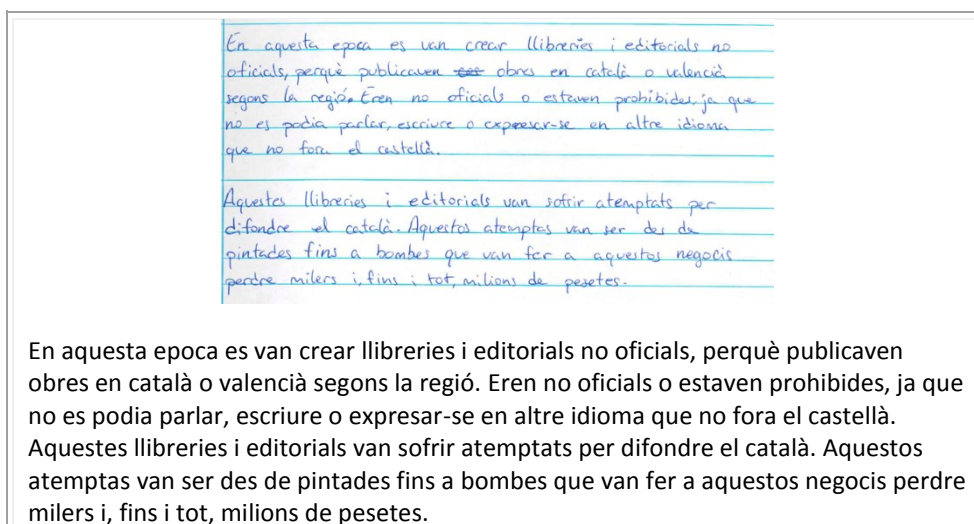 En aquesta epoca es van crear llibreries i editorials no
oficials, perquè publicaven obres en català o valencià
segons la regió. Eren no oficials o estaven prohibides, ja que
no es podia parlar, escriure o expresar-se en altre idioma
que no fora el castellà.
Aquestes llibreries i editorials van sofrir atemptats per
difondre el català. Aquestos atemptas van ser des de
pintades fins a bombes que van fer a aquestos negocis
perdre milers i, fins i tot, milions de pesetes.
En aquesta epoca es van crear llibreries i editorials no oficials, perquè publicaven
obres en català o valencià segons la regió. Eren no oficials o estaven prohibides, ja que
no es podia parlar, escriure o expresar-se en altre idioma que no fora el castellà.
Aquestes llibreries i editorials van sofrir atemptats per difondre el català. Aquestos
atemptas van ser des de pintades fins a bombes que van fer a aquestos negocis perdre
milers i, fins i tot, milions de pesetes.